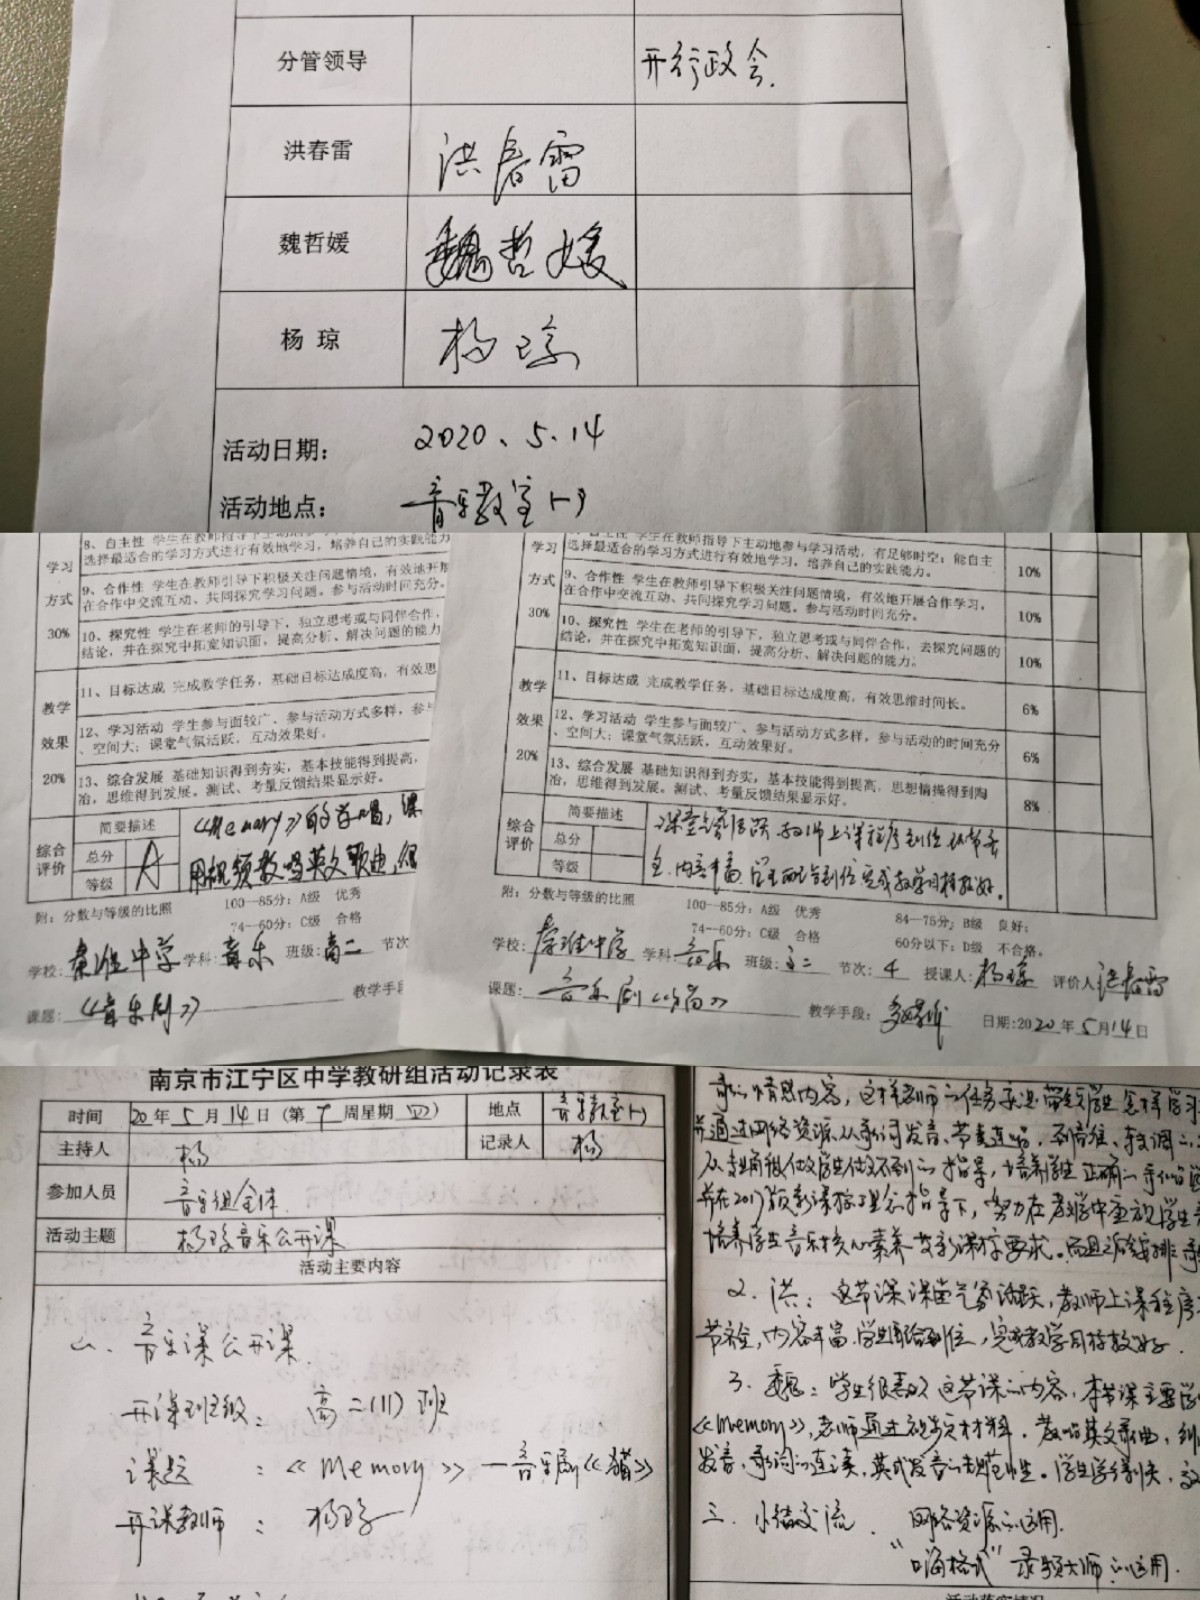 分管领导 开行政会.
洪春雷 洪春雷
魏哲媛 魏哲媛
杨 琼 杨琼
活动日期: 2020、5、14
活动地点: 音乐教室
学习
方式
30%
选择最适合的学习方式进行有效地学习，培养自己的实践能力
9、合作性 学生在教师引导下积极关注问题情境，有效地开展
在合作中交流互动、共同探究学习问题。参与活动时间充分。
10、探究性 学生在老师的引导下，独立思考或与同伴合作，
结论，并在探究中拓宽知识面，提高分析、解决问题的能力
教学
效果
20%
11、目标达成 完成教学任务，基础目标达成度高，有效思
12、学习活动 学生参与面较广、参与活动方式多样，参与
、空间大；课堂气氛活跃，互动效果好。
13、综合发展 基础知识得到夯实，基本技能得到提高，
冶，思维得到发展。测试、考量反馈结果显示好。
综合
评价
简要描述
总分
等级
A
《Memory》的学唱，课
用视频教唱英文歌曲，
附：分数与等级的比照 100—85分：A级 优秀
74—60分：C级 合格
学校: 秦淮中学 学科: 音乐 班级: 高二 节次
课题: 《音乐剧》 教学手段
学习
方式
30%
自主性 学生在教师指导下主动地参与学习活动，有足够时空；能自主
选择最适合的学习方式进行有效地学习，培养自己的实践能力。 10%
9、合作性 学生在教师引导下积极关注问题情境，有效地开展合作学习，
在合作中交流互动、共同探究学习问题。参与活动时间充分。 10%
10、探究性 学生在老师的引导下，独立思考或与同伴合作，去探究问题的
结论，并在探究中拓宽知识面，提高分析、解决问题的能力。 10%
教学
效果
20%
11、目标达成 完成教学任务，基础目标达成度高，有效思维时间长。 6%
12、学习活动 学生参与面较广、参与活动方式多样，参与活动的时间充分
、空间大；课堂气氛活跃，互动效果好。 6%
13、综合发展 基础知识得到夯实，基本技能得到提高，思想情操得到陶
冶，思维得到发展。测试、考量反馈结果显示好。 8%
综合
评价
简要描述
总分
等级
课堂气氛活跃 教师上课程序到位 环节齐
全、内容丰富 学生配合到位 完成教学目标较好。
附：分数与等级的比照 100—85分：A级 优秀 84—75分：B级 良好；
74—60分：C级 合格 60分以下：D级 不合格。
学校: 秦淮中学 学科: 音乐 班级: 高二 节次: 4 授课人: 杨琼 评价人 洪春雷
课题: 音乐剧《猫》 教学手段: 多媒体 日期:2020年5月14日
南京市江宁区中学教研组活动记录表
时间 20年5月14日（第 周星期四） 地点 音乐教室
主持人 杨 记录人 杨
参加人员 音乐组全体
活动主题 杨琼音乐公开课
活动主要内容
一、音乐课公开课.
开课班级: 高二(11)班
课题 :《Memory》—音乐剧《猫》
开课教师 : 杨琼
内容，这样老师的任务就是带领学生怎样学习
并通过网络资源从歌词发音、节奏连唱，到音准、
2. 洪：这节课课堂气氛活跃，教师上课程序
节齐全，内容丰富，学生配合到位，完成教学目标较好.
3. 魏：学生很喜欢这节课的内容，本节课主要学
《Memory》，老师通过视频材料，教唱英文歌曲，到
发音、歌词的连读，英式发音的规范性。学生学得快，这
三. 小结交流. 网络资源的运用.
"嗨格式"录频大师的运用.